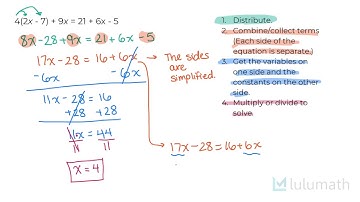 4(2x - 7) + 9x = 21 + 6x - 5
8x - 28 + 9x = 21 + 6x - 5
17x - 28 = 16 + 6x
-6x - 6x
11x - 28 = 16
+28 +28
11x = 44
11 11
x = 4
The sides
are
simplified.
17x - 28 = 16 + 6x
1. Distribute.
2. Combine/collect terms
(Each side of the
equation is separate.)
3. Get the variables on
one side and the
constants on the other
side
4. Multiply or divide to
solve
lulumath